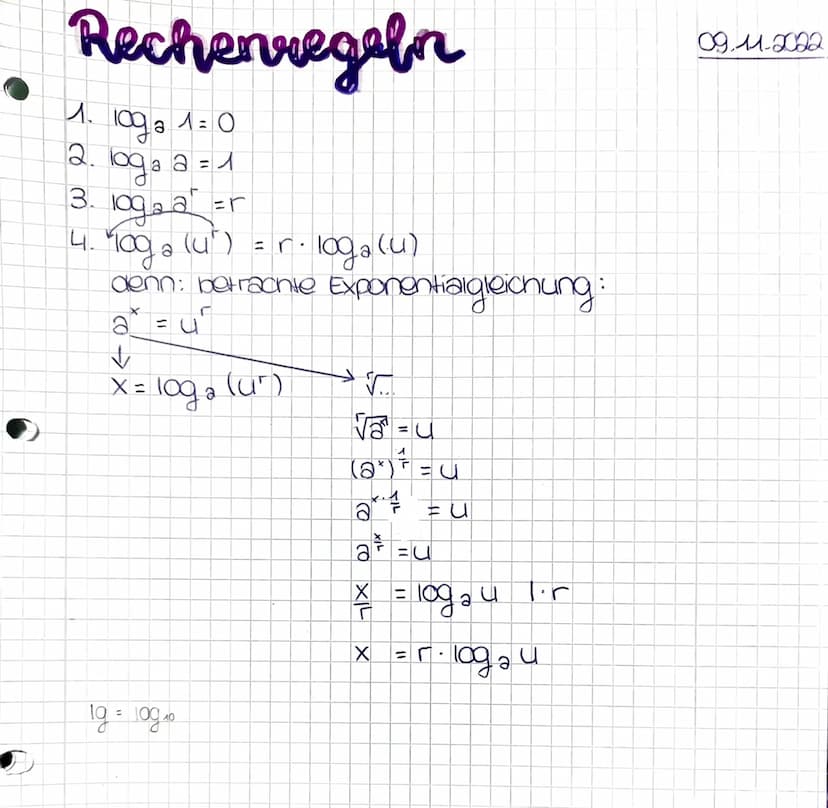 Rechenregeln
09.11.2022
1. logₐ 1 = 0
2. logₐ a = 1
3. logₐ aʳ = r
4. logₐ (uʳ) = r · logₐ (u)
denn: betrachte Exponentialgleichung:
aˣ = uʳ
↓
x = logₐ (uʳ) → ʳ√...
ʳ√aˣ = u
(aˣ)^(1/r) = u
a^(x · 1/r) = u
a^(x/r) = u
x/r = logₐ u | · r
x = r · logₐ u
lg = log₁₀